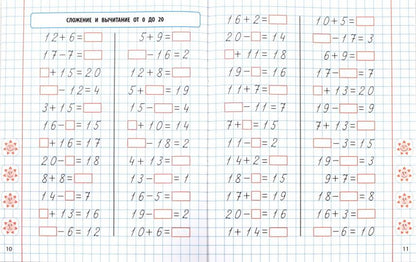 СЛОЖЕНИЕ И ВЫЧИТАНИЕ ОТ 0 ДО 20
12+6=□
17-7=□
□+15=20
□-12=4
3+15=□
16-□=15
□+16=17
20-□=18
8+8=□
14-□=7
□+13=16
□-6=12
5+9=□
□-16=2
12+8=□
5+□=19
15-□=4
□+10=14
□-18=2
4+13=□
13-□=1
16-5=□
19-□=2
10+6=□
16+2=□
20-□=14
□+11=18
19-□=16
11+7=□
□-11=7
7+□=15
11-□=2
14+2=□
18-□=15
17+□=19
20-□=16
1+14=□
10+5=□
□-17=3
6+9=□
17-□=7
□+13=20
19-□=9
7+13=□
□-3=15
19-□=3
9+7=□
18-□=8
16+3=□
□-6=10
10
11